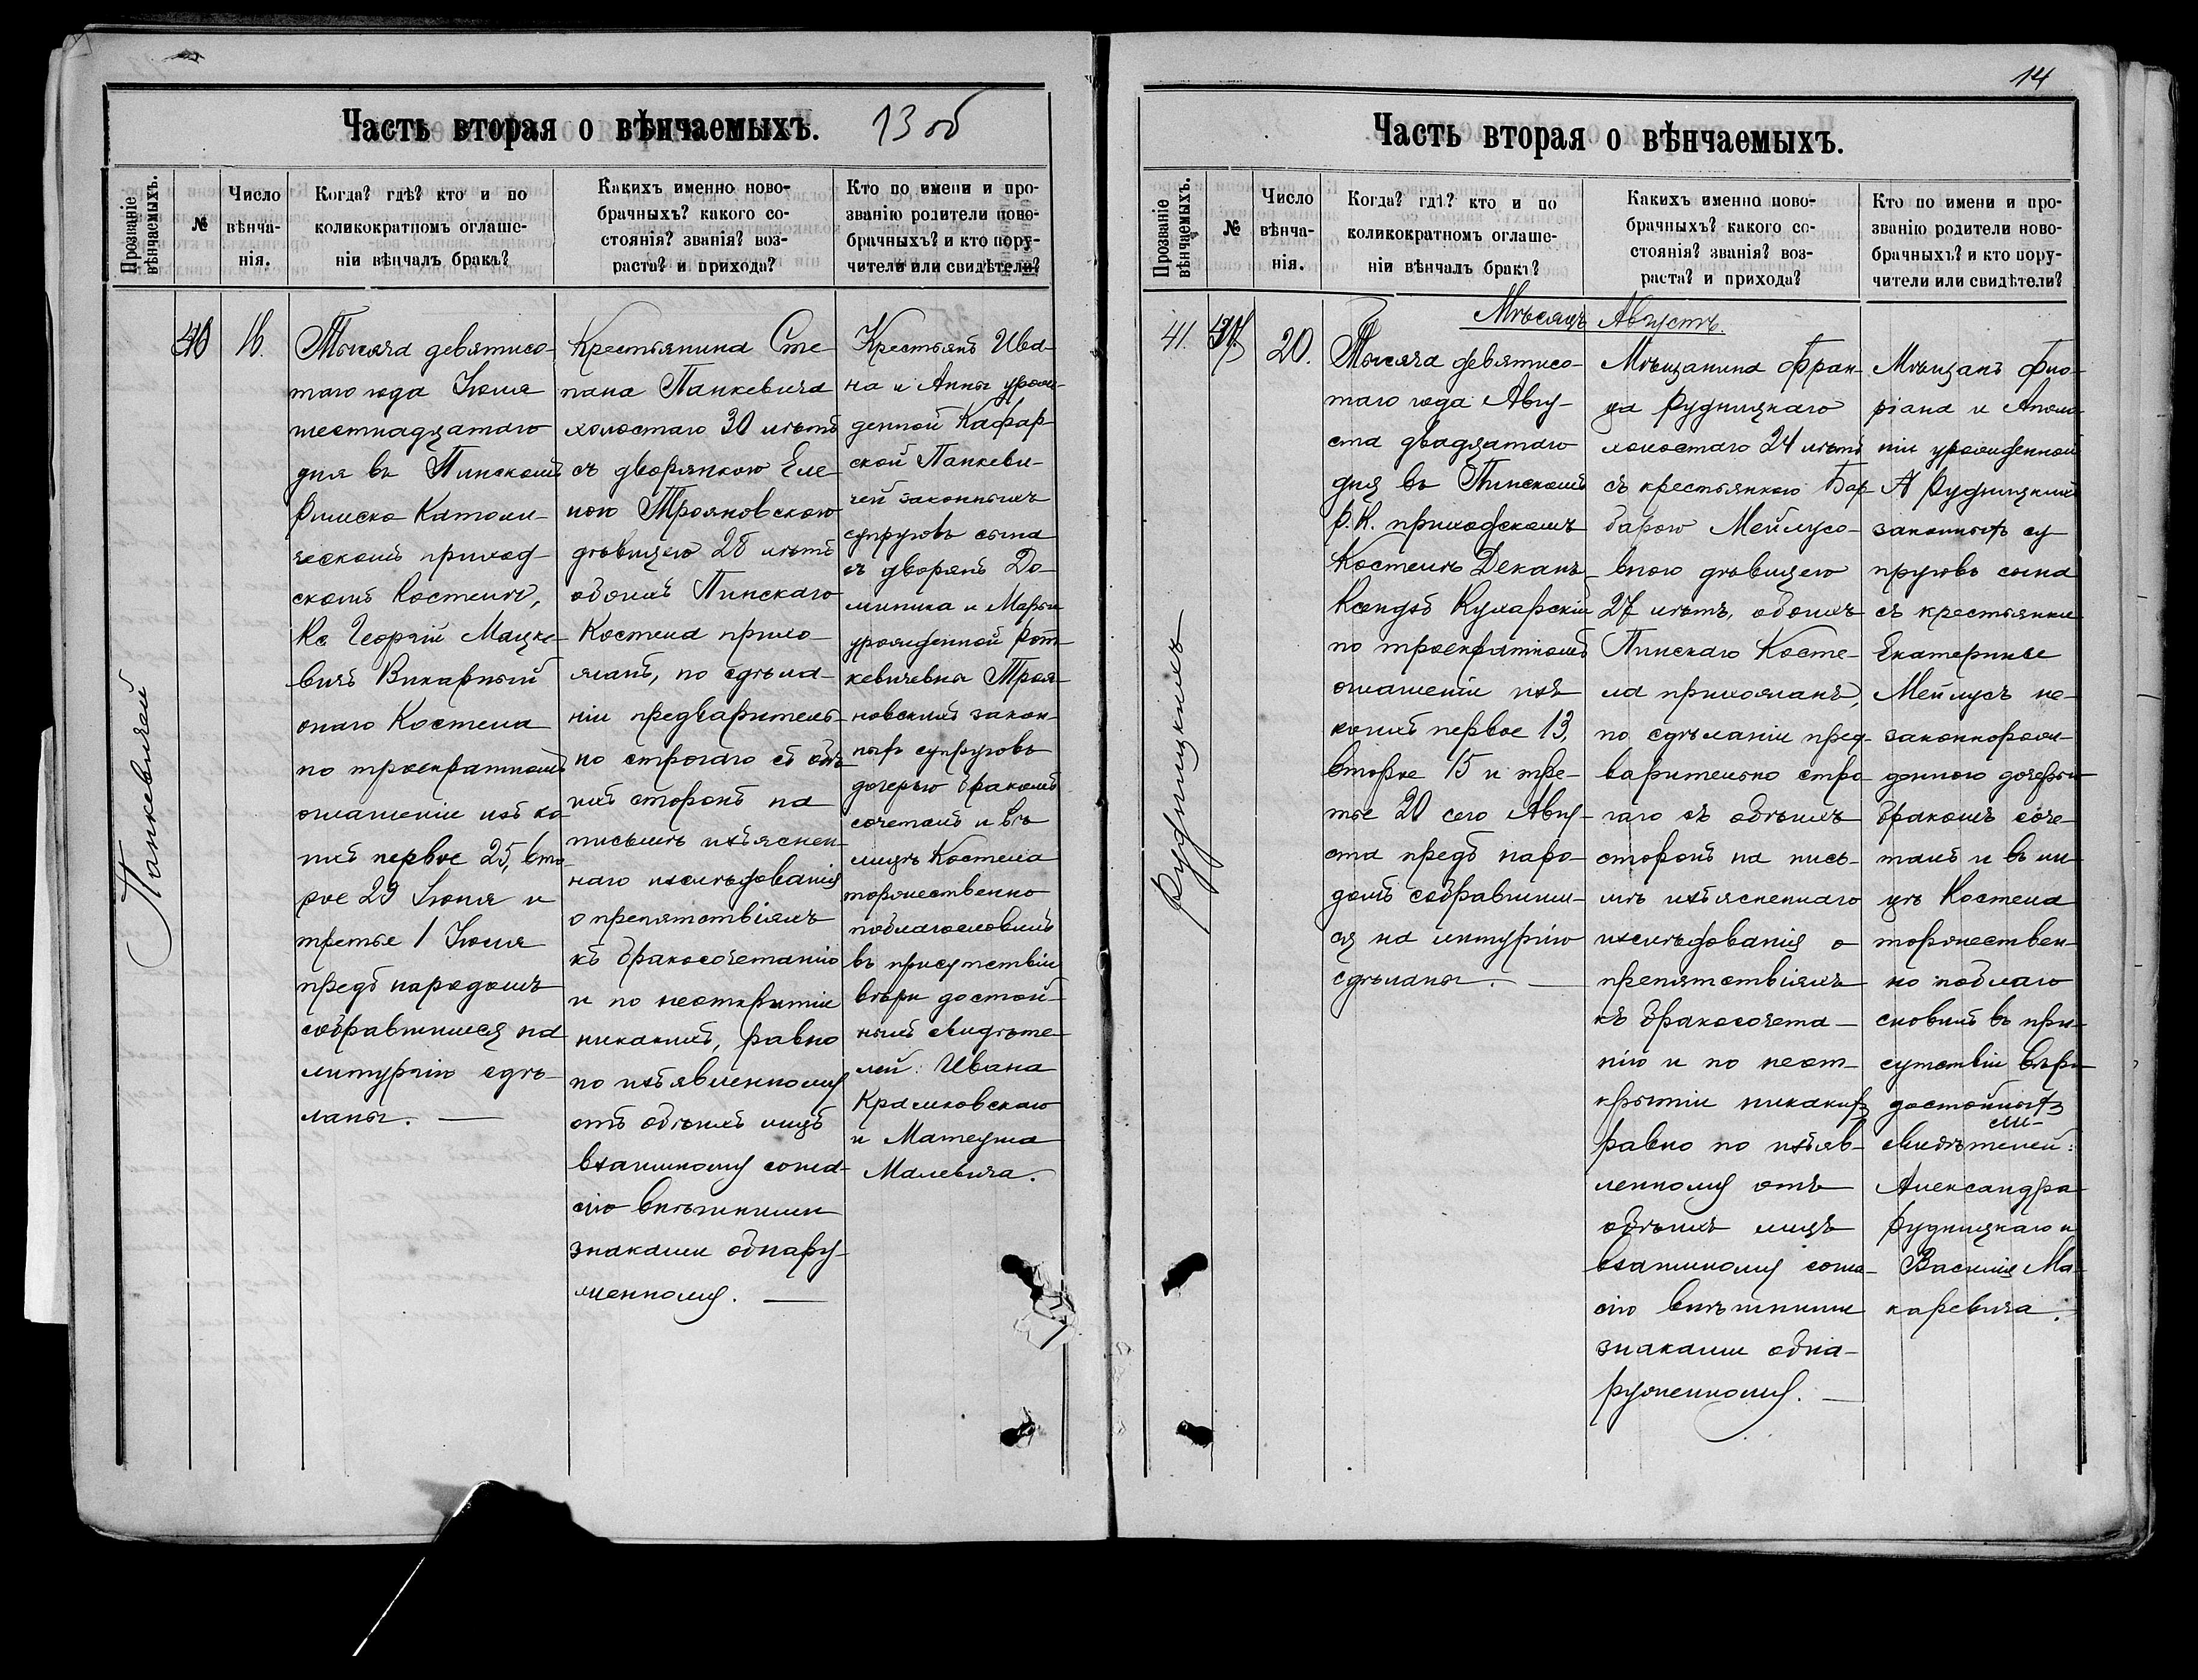 Часть вторая о вѣнчаемыхъ.
13 об
Прозваніе вѣнчаемыхъ.
№
Число вѣнча-
нія.
Когда? гдѣ? кто и по
коликократномъ оглаше-
ніи вѣнчалъ бракъ?
Какихъ именно ново-
брачныхъ? какого со-
стоянія? званія? воз-
раста? и прихода?
Кто по имени и про-
званію родители ново-
брачныхъ? и кто пору-
чители или свидѣтели?
Панкевичей
40
16.
Тысяча девятисо-
таго года Іюля
шестнадцатаго
дня въ Пинскомъ
Римско Католи-
ческомъ приход-
скомъ Костелѣ,
Кс Георгій Мацке-
вичъ Викарный
онаго Костела
по троекратномъ
оглашеніи изъ ко
ихъ первое 25, вто-
рое 29 Іюня и
третье 1 Іюля
предъ народомъ
собравшимся на
литургію сдѣ-
ланы. —
Крестьянина Сте
пана Панкевича
холостаго 30 лѣтъ
съ дворянкою Еле
ною Трояновскою
дѣвицею 28 лѣтъ
обоихъ Пинскаго
Костела прихо-
жанъ, по сдѣла-
ніи предваритель-
но строгаго съ обѣ
ихъ сторонъ на
письмѣ изъяснен-
наго изслѣдованія
о препятствіяхъ
къ бракосочетанію
и по неоткрытіи
никакихъ, равно
по изъявленному
отъ обѣихъ лицъ
взаимному согла-
сію внѣшними
знаками обнару-
женному. —
Крестьянъ Ива-
на и Анны урож-
денной Кафар
ской Панкеви-
чей законныхъ
супруговъ сына
съ дворянъ До-
миника и Марьи
урожденной Рот-
кевичевны Троя-
новскихъ закон-
ныхъ супруговъ
дочерью бракомъ
сочеталъ и въ
лицѣ Костела
торжественно
поблагословилъ
въ присутствіи
вѣры достой-
ныхъ свидѣте-
лей: Ивана
Крамковскаго
и Матеуша
Малевича.
14
Часть вторая о вѣнчаемыхъ.
Прозваніе вѣнчаемыхъ.
№
Число вѣнча-
нія.
Когда? гдѣ? кто и по
коликократномъ оглаше-
ніи вѣнчалъ бракъ?
Какихъ именно ново-
брачныхъ? какого со-
стоянія? званія? воз-
раста? и прихода?
Кто по имени и про-
званію родители ново-
брачныхъ? и кто пору-
чители или свидѣтели?
Мѣсяцъ Августъ.
Рудницкихъ
41.
20.
Тысяча девятисо-
таго года Авгу-
ста двадцатаго
дня въ Пинскомъ
Р. К. приходскомъ
Костелѣ Деканъ
Ксендзъ Кухарскій
по троекратномъ
оглашеніи изъ
коихъ первое 13,
второе 15 и тре-
тье 20 сего Авгу-
ста предъ наро-
домъ собравшим-
ся на литургію
сдѣланы. —
Мѣщанина Фран-
ца Рудницкаго
холостаго 24 лѣтъ
съ крестьянкою Бар-
барою Мейлусо-
вною дѣвицею
27 лѣтъ, обоихъ
Пинскаго Косте-
ла прихожанъ,
по сдѣланіи пред-
варительно стро
гаго съ обѣихъ
сторонъ на пись-
мѣ изъясненнаго
изслѣдованія о
препятствіяхъ
къ бракосочета-
нію и по неот-
крытіи никакихъ
равно по изъяв-
ленному отъ
обѣихъ лицъ
взаимному согла-
сію внѣшними
знаками обна-
руженному. —
Мѣщанъ Фло-
ріана и Аполо-
ніи урожденной
N Рудницкихъ
законныхъ су-
пруговъ сына
съ крестьянки
Екатерины
Мейлусъ не-
законнорож-
денною дочерью
бракомъ соче-
талъ и въ ли-
цѣ Костела
торжествен-
но поблаго
словилъ въ при-
сутствіи вѣры
достойныхъ
свидѣтелей:
Александра
Рудницкаго и
Василія Ма-
каревича.